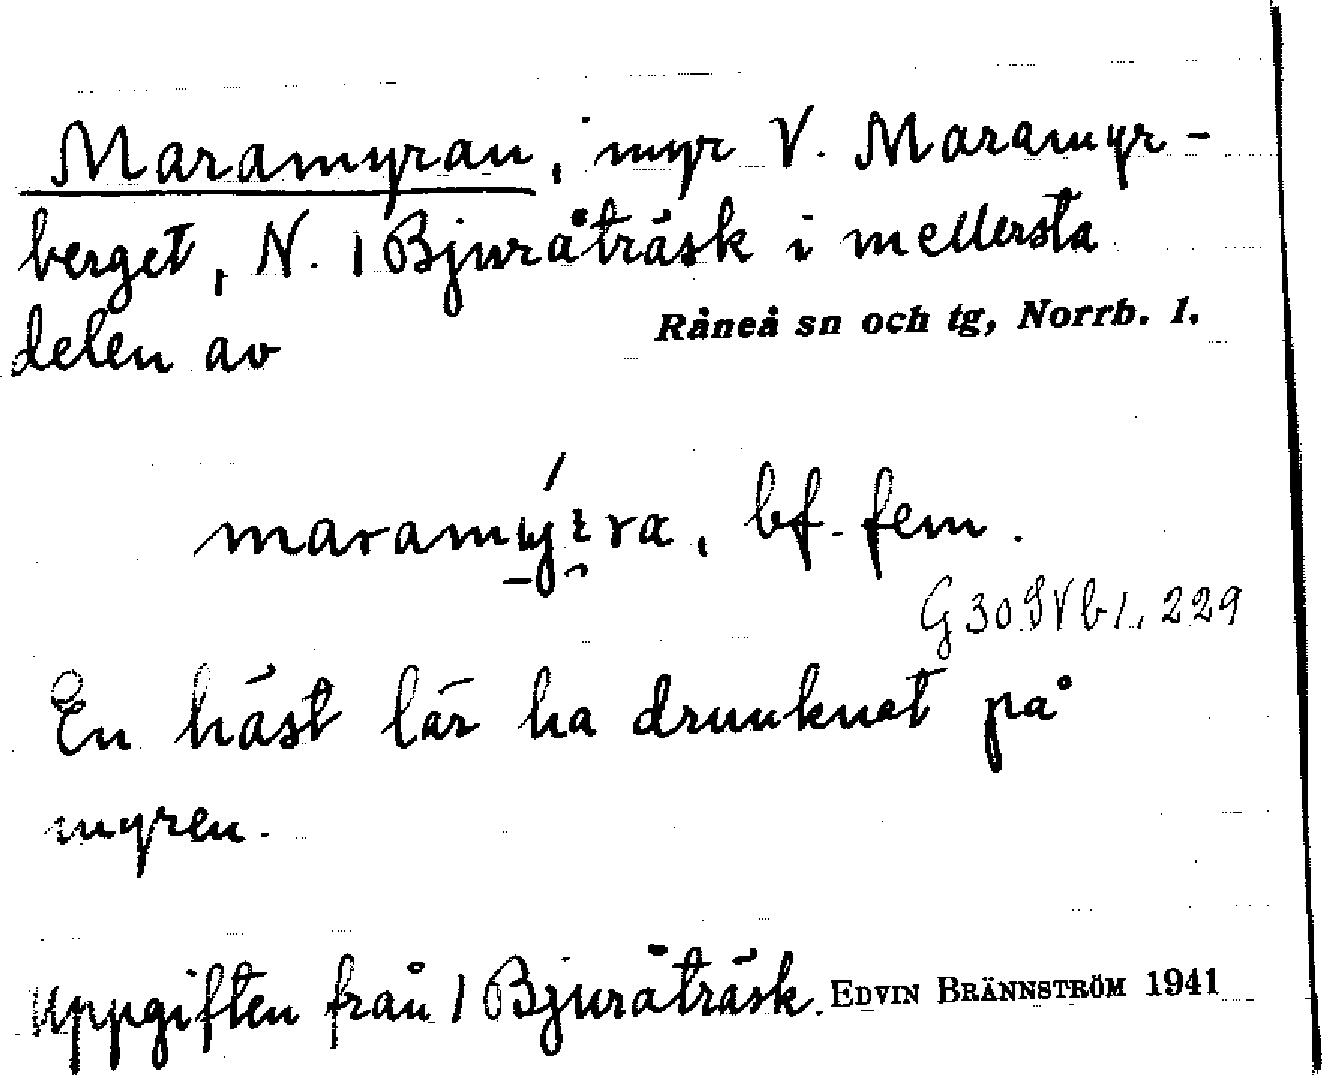 Maramyran, myr V. Maramyr-
berget, N. 1 Bjuråträsk i mellersta
delen av Råneå sn och tg, Norrb. l.
maramy̆́:ra, bf. fem.
G 30 SVb 1., 229
En häst lär ha drunknat på
myren.
Uppgiften från 1 Bjuråträsk. EDVIN BRÄNNSTRÖM 1941